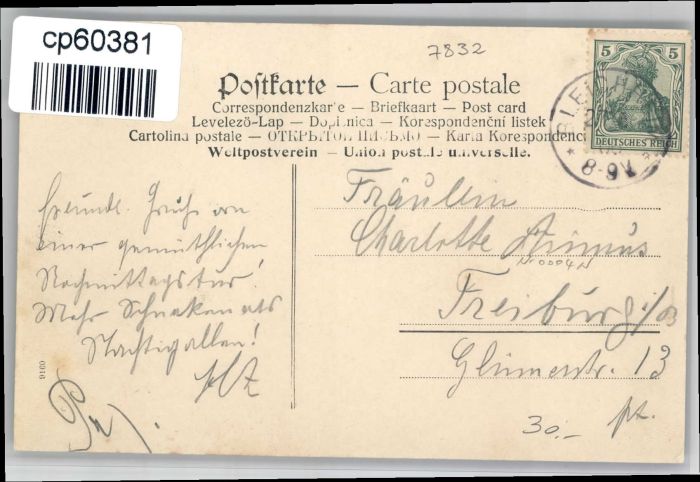 cp60381
7832
Postkarte — Carte postale
Correspondenzkarte — Briefkaart — Post card
Levelező-Lap — Dopisnica — Korespondenční listek
Cartolina postale — ОТКРЫТОЕ ПИСЬМО — Karta Korespondenc
Weltpostverein — Union postale universelle.
5 5
DEUTSCHES REICH
8-9V.
Freundl. Gruß von
einer gemüthlichen
Nachmittagstour!
Mehr Schnaken als
Nachtigallen!
Fräulein
Charlotte
Freiburg i/B
Glümerstr. 13
9160
30.-